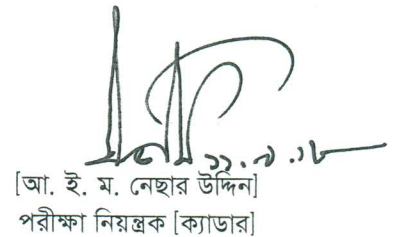 [আ. ই. ম. নেছার উদ্দিন]
পরীক্ষা নিয়ন্ত্রক [ক্যাডার]